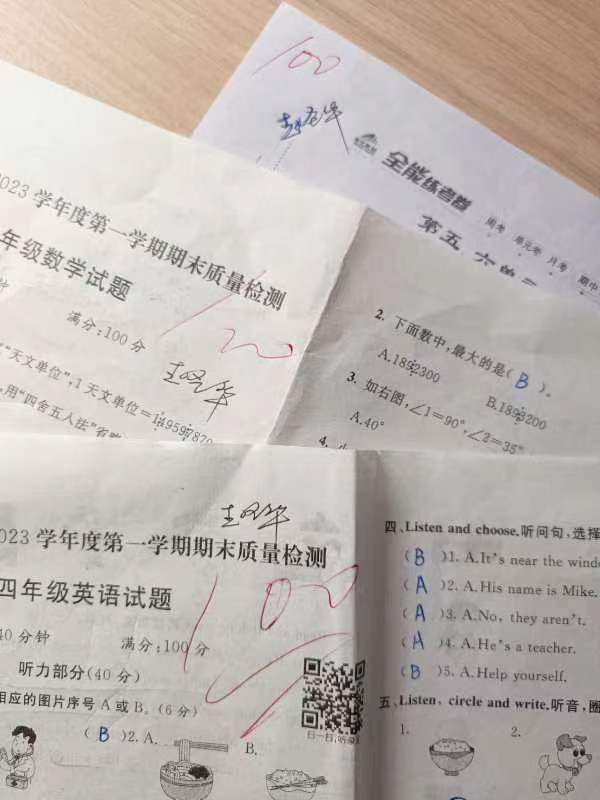 100
全能练考卷
周考 单元考 月考 期中
第五、六单元
2023 学年度第一学期期末质量检测
年级数学试题
钟
满分:100 分
100
"天文单位",1 天文单位=149597870
用"四舍五入法"省略
2. 下面数中,最大的是( B )。
A.1892300
B.1893200
3. 如右图,∠1=90°,∠2=35°
A.40°
4.
023 学年度第一学期期末质量检测
四年级英语试题
100
40 分钟
满分:100 分
听力部分(40 分)
相应的图片序号 A 或 B。(6 分)
( B )2. A.
B.
扫一扫,听录
四、Listen and choose.听问句,选择
( B )1. A.It's near the windo
( A )2. A.His name is Mike.
( A )3. A.No, they aren't.
( A )4. A.He's a teacher.
( B )5. A.Help yourself.
五、Listen, circle and write.听音,圈
1.
2.